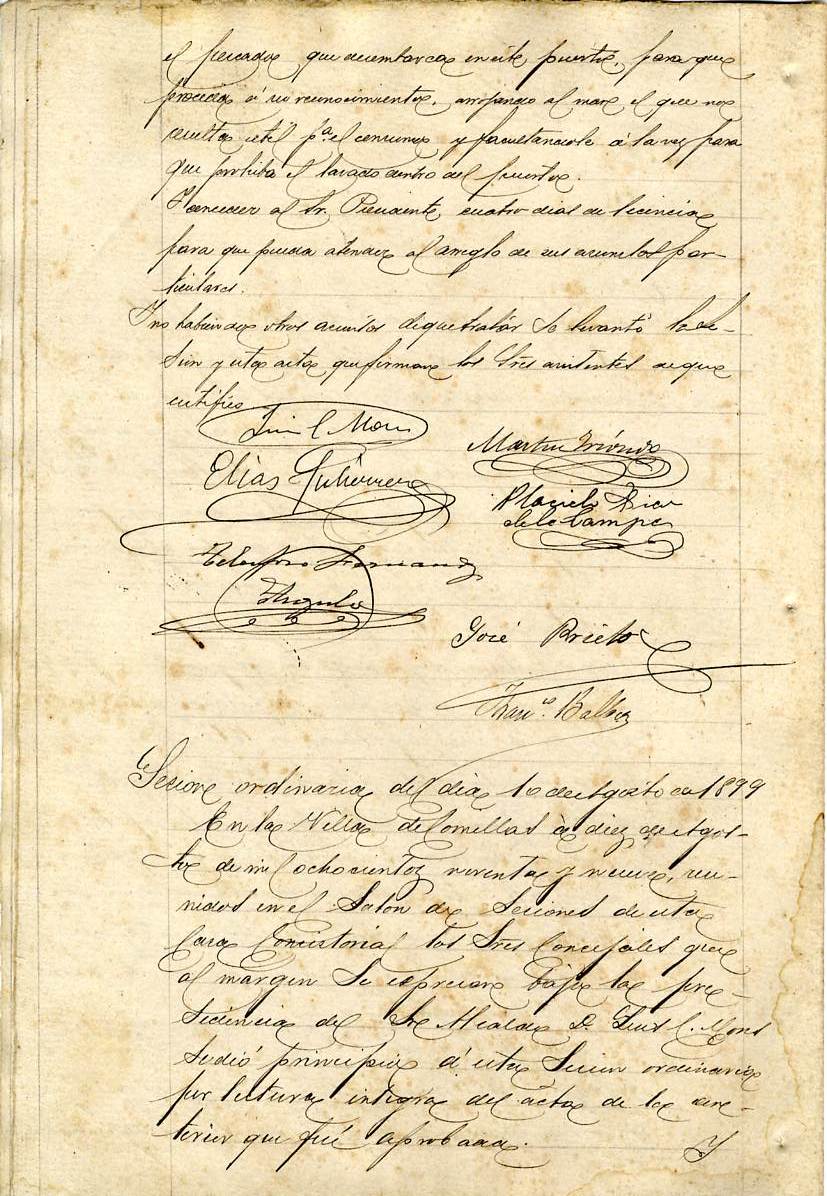 el pescado que desembarca en este puerto, para que
proceda á su reconocimiento, arrojando al mar el que no
resulte útil pª. el consumo y facultandole á la vez para
que prohiba el lavado dentro del puerto.
Conceder al Sr. Presidente cuatro dias de licencia
para que pueda atender al arreglo de sus asuntos par-
ticulares.
Y no habiendo otros asuntos de que tratar se levantó la se-
sion y esta acta que firman los Sres asistentes de que
certifico
Luis C. Mons
Martin Iriondo
Elías Gutierrez
Placido Diaz
de la Campa
Telesforo Fernandez
Angulo
José Prieto
Franco. Balbas
Sesion ordinaria del dia 10 de Agosto de 1899
En la Villa de Comillas á diez de Agos-
to de mil ochocientos noventa y nueve, reu-
nidos en el Salon de Sesiones de esta
Casa Consistorial los Sres Concejales que
al margen se espresan bajo la pre-
sidencia del Sr Alcalde D. Luis C. Mons
se dió principio á esta Sesion ordinaria
por lectura integra del acta de la an-
terior que fué aprobada. Y